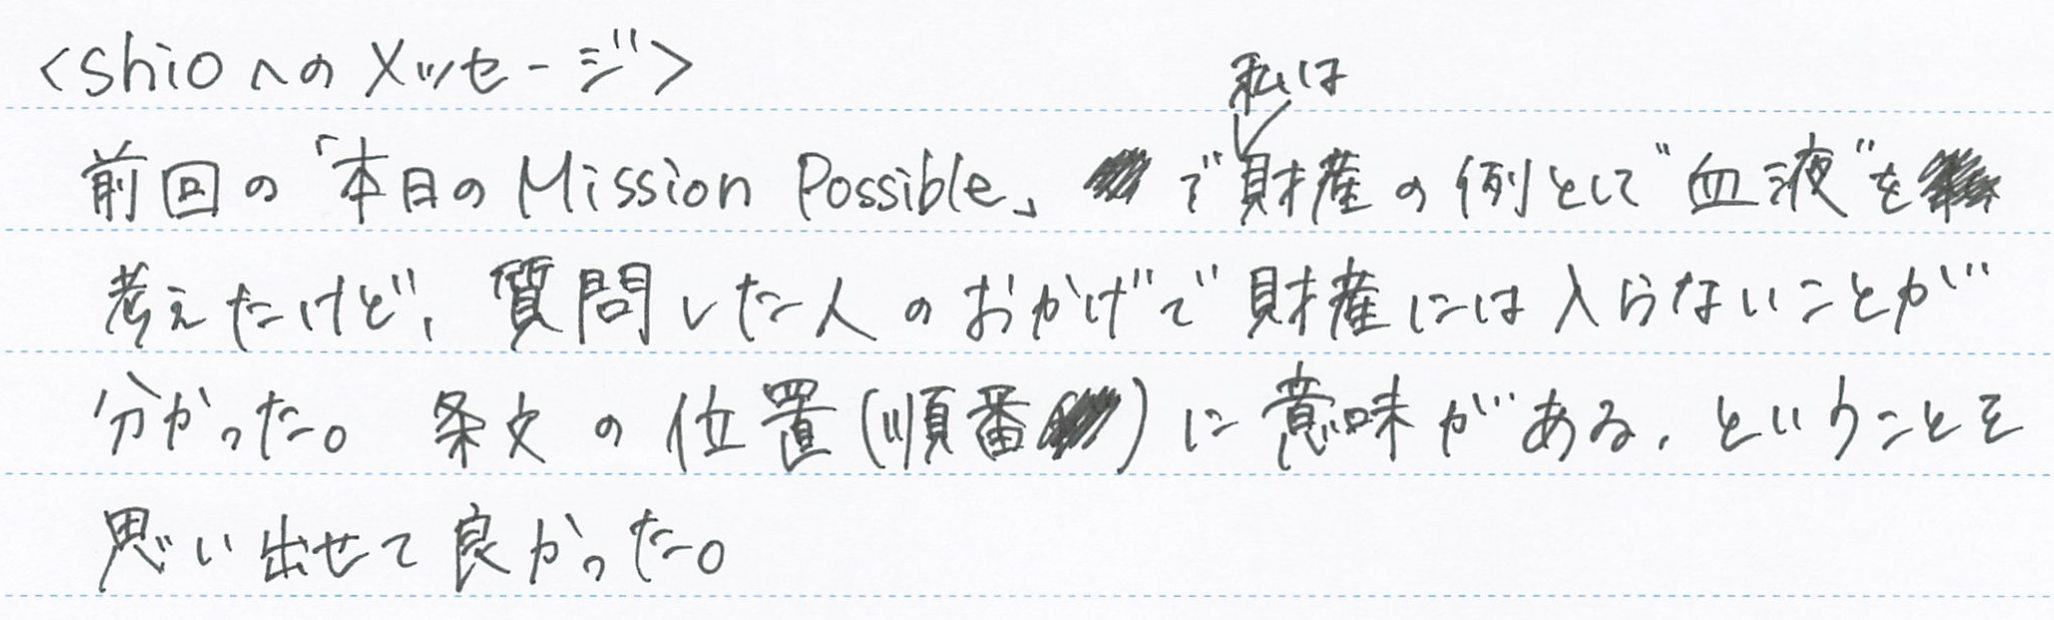 <shioへのメッセージ>
前回の「本日のMission Possible」で私は財産の例として“血液”を
考えたけど、質問した人のおかげで財産には入らないことが
分かった。条文の位置(順番)に意味がある、ということを
思い出せて良かった。